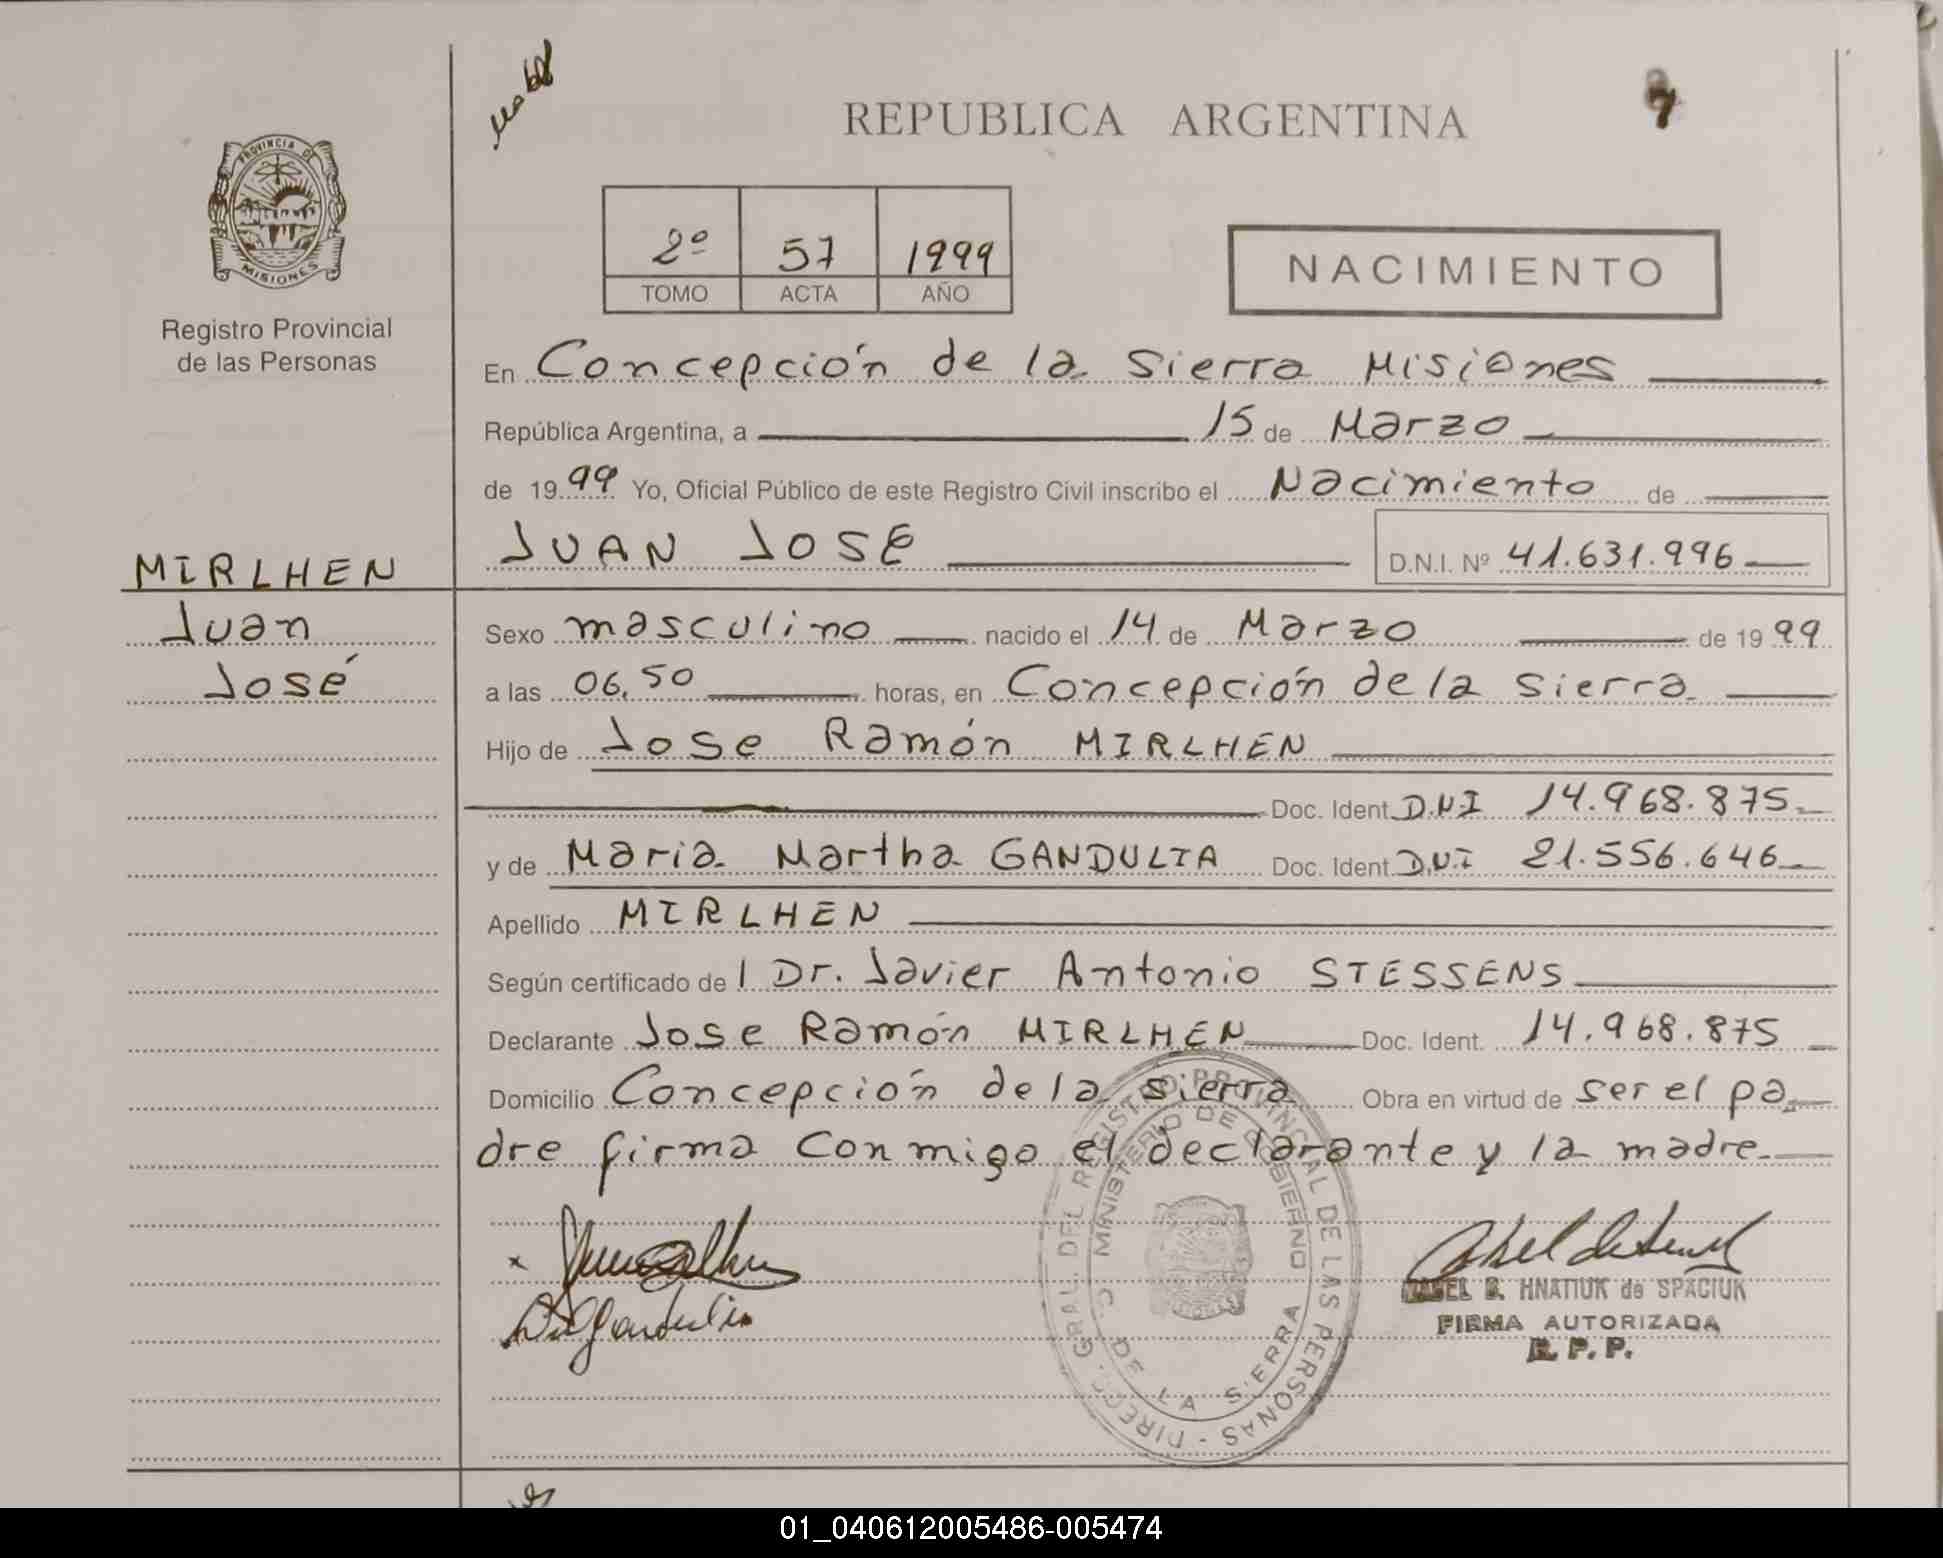 REPUBLICA ARGENTINA
7
PROVINCIA DE
MISIONES
Registro Provincial
de las Personas
2º 57 1999
TOMO ACTA AÑO
NACIMIENTO
En Concepción de la Sierra Misiones
República Argentina, a 15 de Marzo
de 1999 Yo, Oficial Público de este Registro Civil inscribo el Nacimiento de
JUAN JOSE D.N.I. Nº 41.631.996
MIRLHEN
Juan
José
Sexo masculino nacido el 14 de Marzo de 1999
a las 06,50 horas, en Concepción de la Sierra
Hijo de Jose Ramón MIRLHEN
Doc. Ident. D.N.I 14.968.875
y de Maria Martha GANDULIA Doc. Ident. D.N.I 21.556.646
Apellido MIRLHEN
Según certificado de l Dr. Javier Antonio STESSENS
Declarante Jose Ramón MIRLHEN Doc. Ident. 14.968.875
Domicilio Concepción de la Sierra Obra en virtud de ser el pa
dre firma conmigo el declarante y la madre.
DIREC. GRAL. DEL REGISTRO PROVINCIAL DE LAS PERSONAS
MINISTERIO DE GOBIERNO
DE LA SIERRA
HNATIUK de SPACIUK
FIRMA AUTORIZADA
R. P. P.
01_040612005486-005474